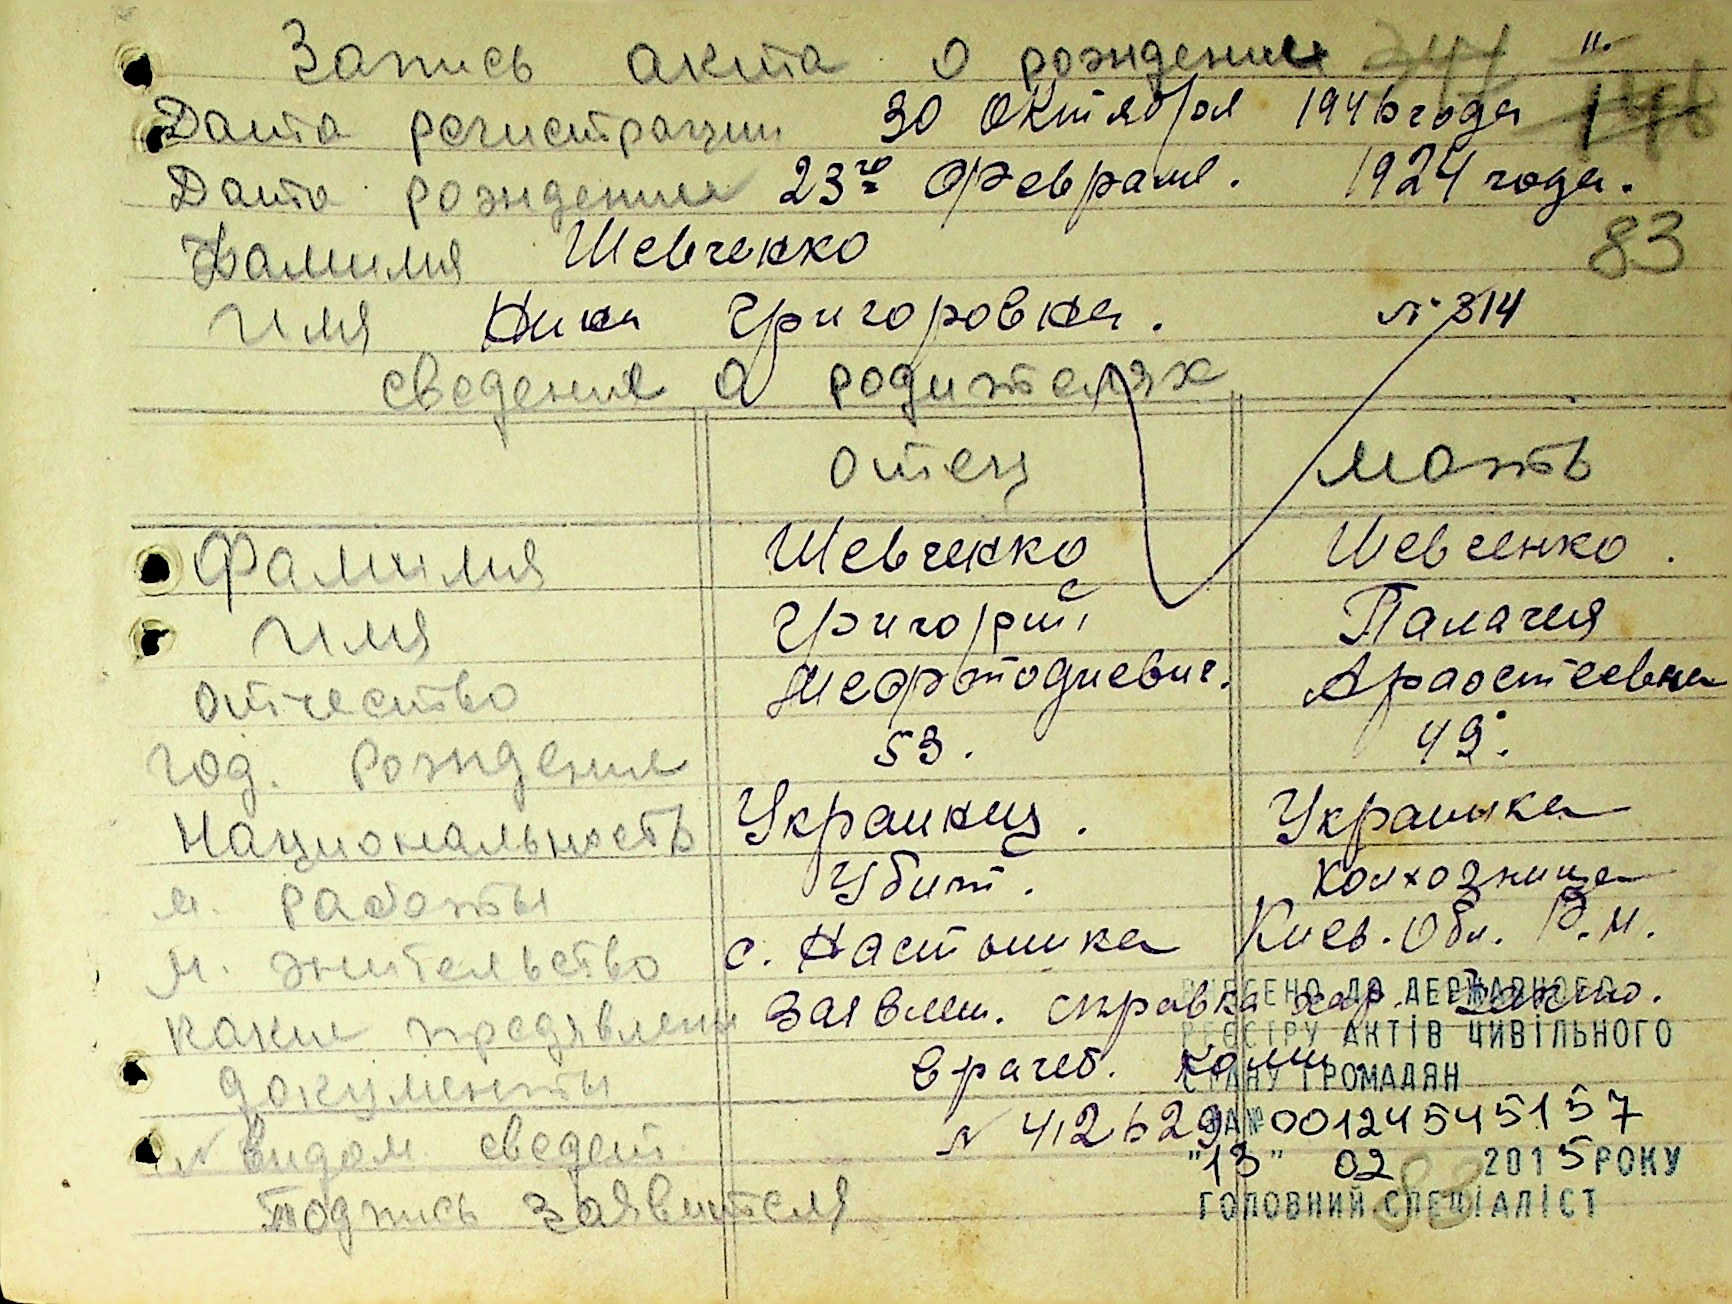 Запись акта о рождении 11.
Дата регистрации 30 Октября 1946 года 146
Дата рождения 23го Февраля. 1924 года.
83
Фамилия Шевченко
Имя Нина Григоровна. № 314
сведения о родителях
отец мать
Фамилия Шевченко Шевченко.
Имя Григорий Палагия
отчество Мефтодиевич. Араостеевна
год. рождения 53. 49.
Национальность Украинец. Украинка
м. работы Убит. Колхозница
м. жительство с. Настышка Киев. Обл. Р.М.
какие предявлени Заявлен. справка
документы врачеб. комис.
№ видом сведет № 412629
Подпись заявителя
ВНЕСЕНО ДО ДЕРЖАВНОГО
РЕЄСТРУ АКТІВ ЦИВІЛЬНОГО
СТАНУ ГРОМАДЯН
ЗА № 00124545157
"13" 02 2015 РОКУ
ГОЛОВНИЙ СПЕЦІАЛІСТ
83